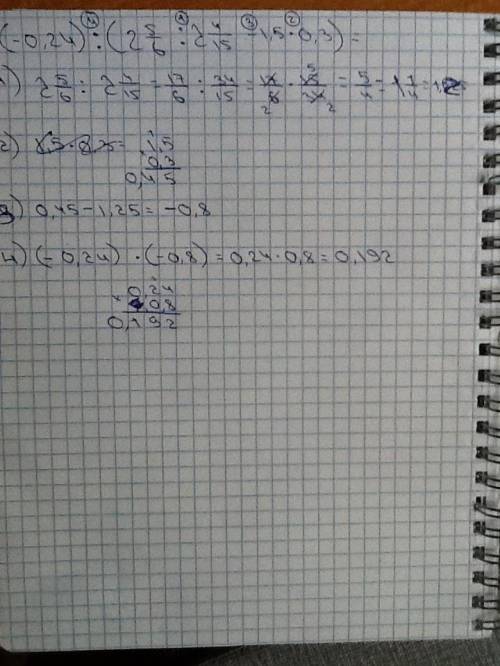 (-0,24) : (2 5/6 : 2 4/15 - 1,5 · 0,3) =
1) 2 5/6 : 2 4/15 = 17/6 : 34/15 = 17/6 · 15/34 = 5/4 = 1 1/4 =
2) 1,5
0,3
0,45
3) 0,45 - 1,25 = -0,8
4) (-0,24) · (-0,8) = 0,24 · 0,8 = 0,192
0,24
× 0,8
0,192